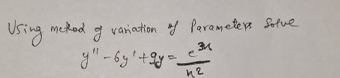 Using method of variation of Parameters solve
y'' - 6y' + 9y = e^{3x} / x^2